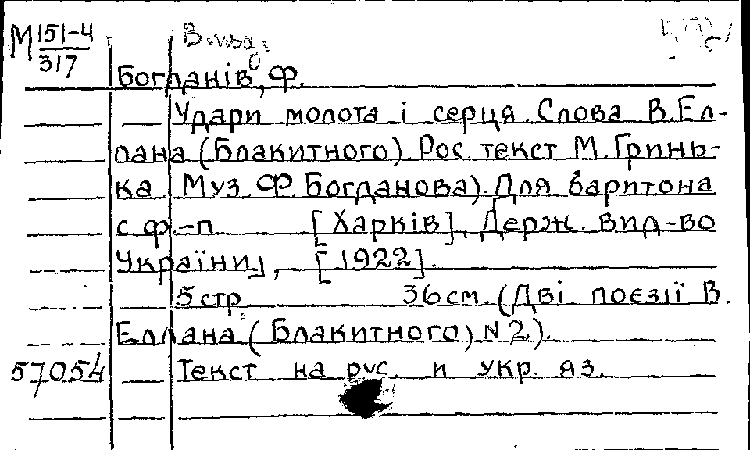 М 151-4
317
Богданів, Ф.
Удари молота і серця. Слова В. Ел-
лана (Блакитного). Рос. текст М. Гринь-
ка (Муз. Ф. Богданова). Для баритона
с ф.-п. [Харків], Держ. вид-во
України, [1922].
5 стр. 36 см. (Дві поезії В.
Еллана (Блакитного) N 2).
57054 Текст на рус. и укр. яз.